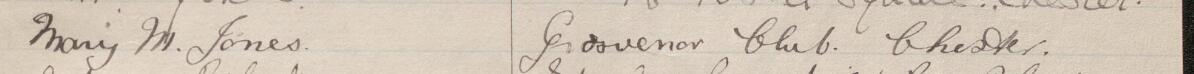 Mary M. Jones. Grosvenor Club. Chester.